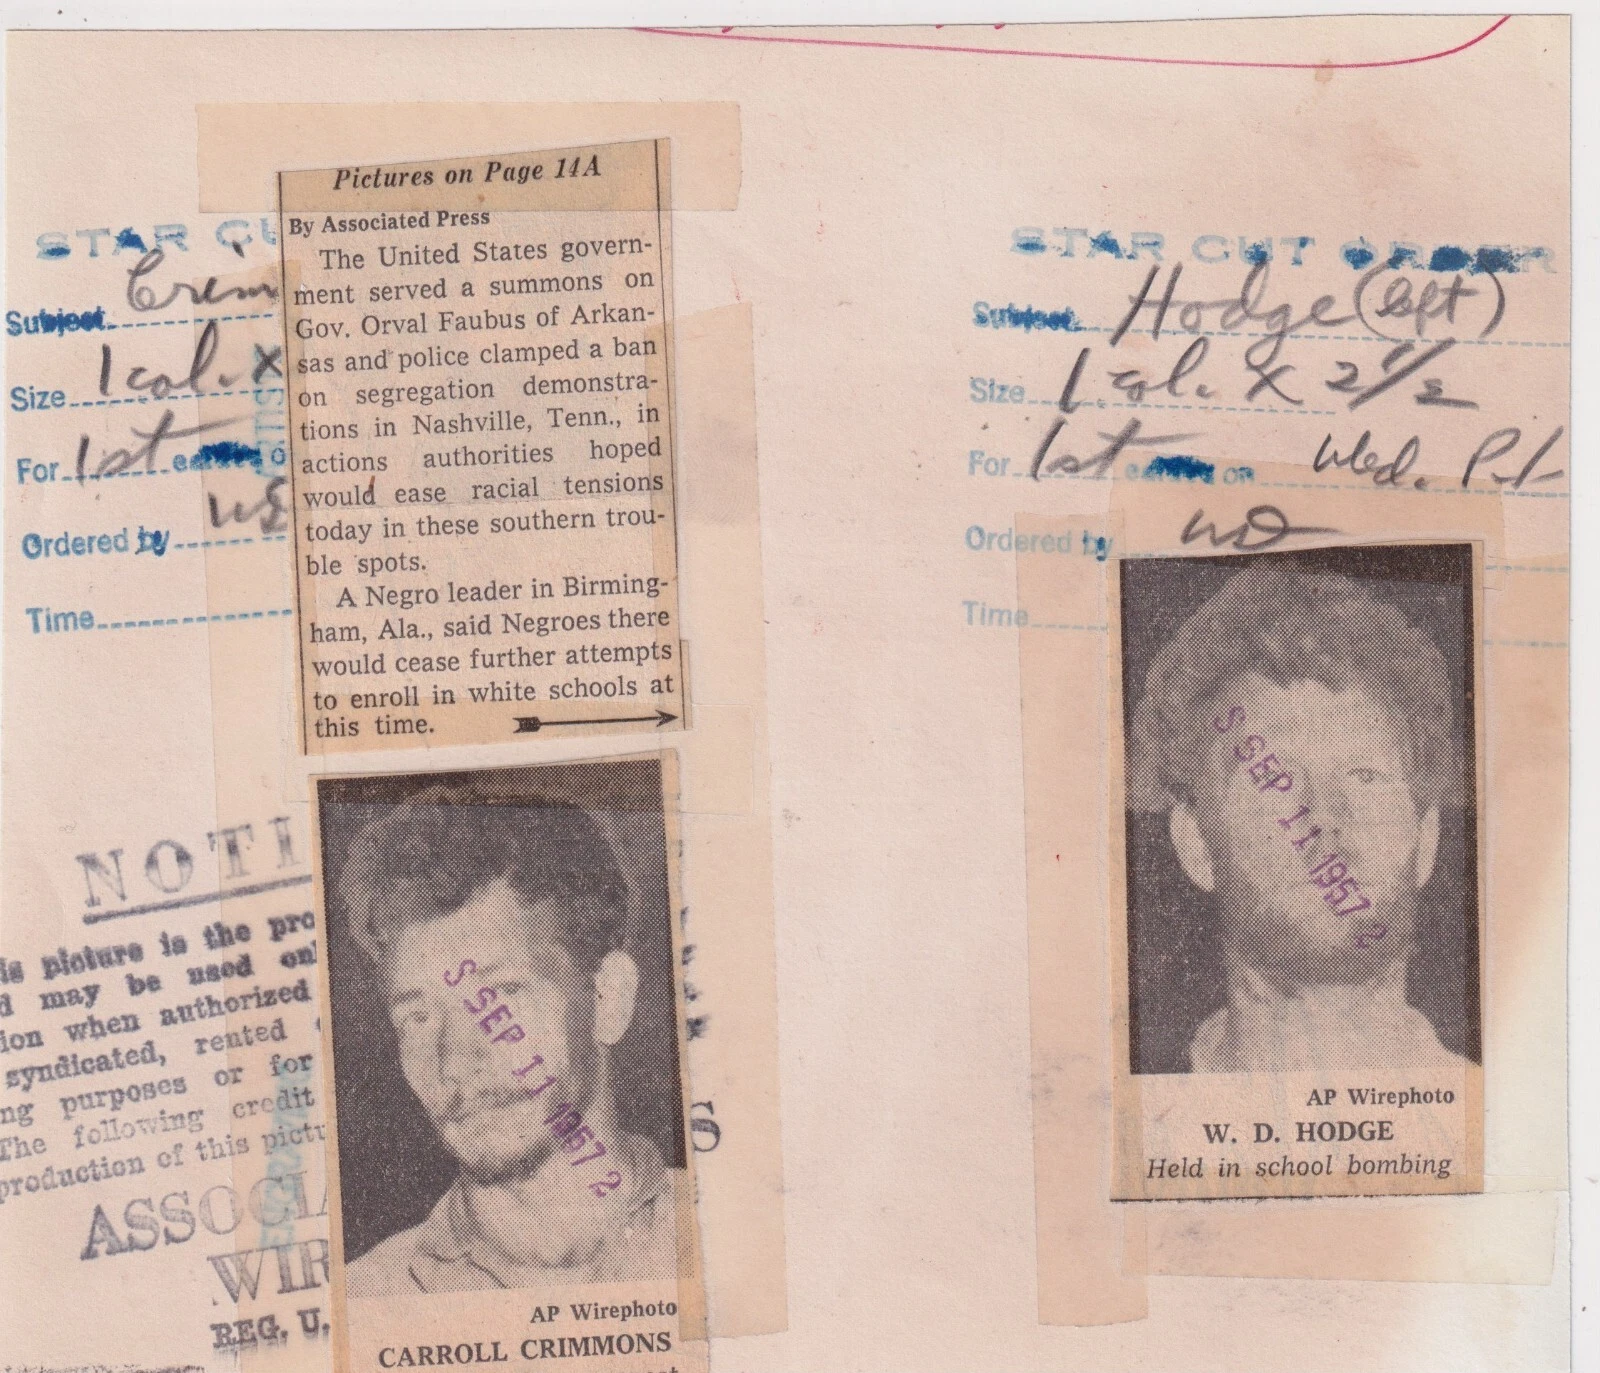 STAR CU
Subject Crim
Size 1 col. X
For 1st o
Ordered by
Time
Pictures on Page 14A
By Associated Press
The United States govern-
ment served a summons on
Gov. Orval Faubus of Arkan-
sas and police clamped a ban
on segregation demonstra-
tions in Nashville, Tenn., in
actions authorities hoped
would ease racial tensions
today in these southern trou-
ble spots.
A Negro leader in Birming-
ham, Ala., said Negroes there
would cease further attempts
to enroll in white schools at
this time.
NOTI
is picture is the pro
d may be used onl
ion when authorized
syndicated, rented
ng purposes or for
The following credit
production of this pictu
ASSOCIA
WIR
REG. U.
S SEP 11 1957 2
AP Wirephoto
CARROLL CRIMMONS
STAR CUT ORDER
Subject Hodge (left)
Size 1 col. X 2 1/2
For 1st on Wed. P.1
Ordered by
Time
S SEP 11 1957 2
AP Wirephoto
W. D. HODGE
Held in school bombing